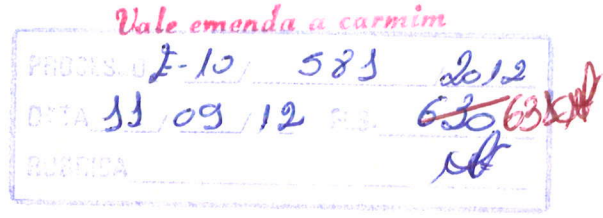 Vale emenda a carmim
PROCESSO E-10 / 581 / 2012
DATA 11 / 09 / 12 FLS. 630 631
RUBRICA